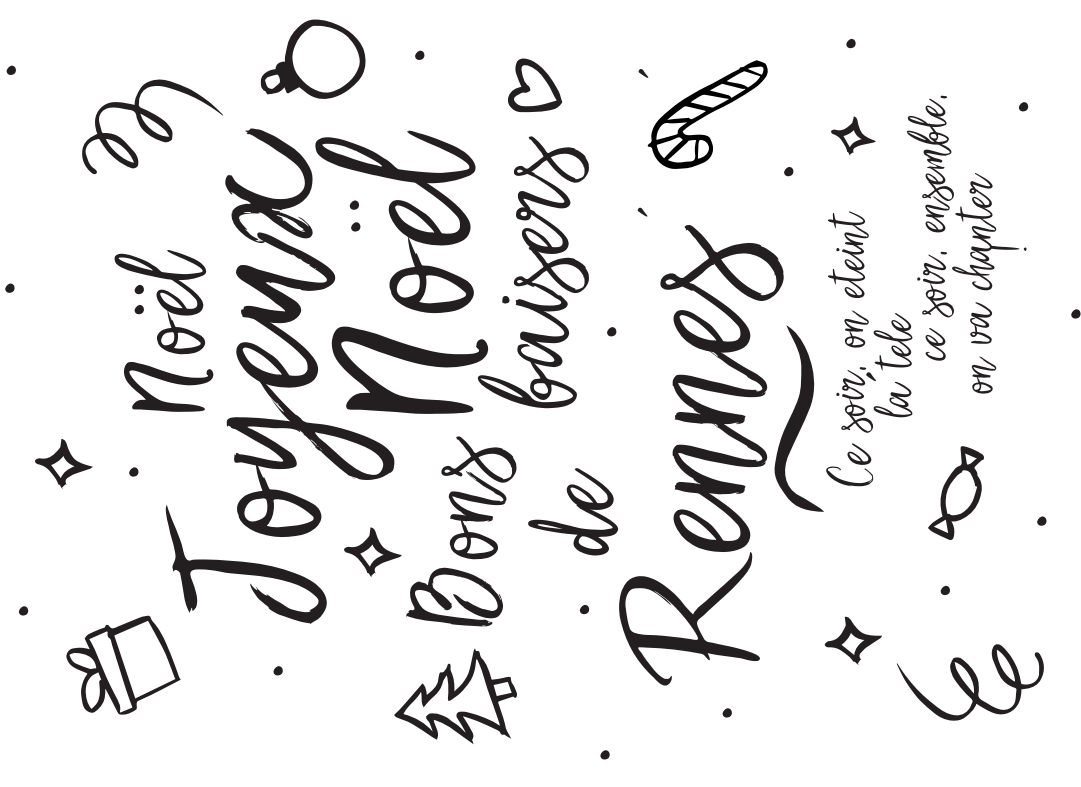 Noël
Joyeux
Noël
Bons
baisers
de
Rennes
Ce soir, on eteint
la tele
ce soir, ensemble,
on va chanter